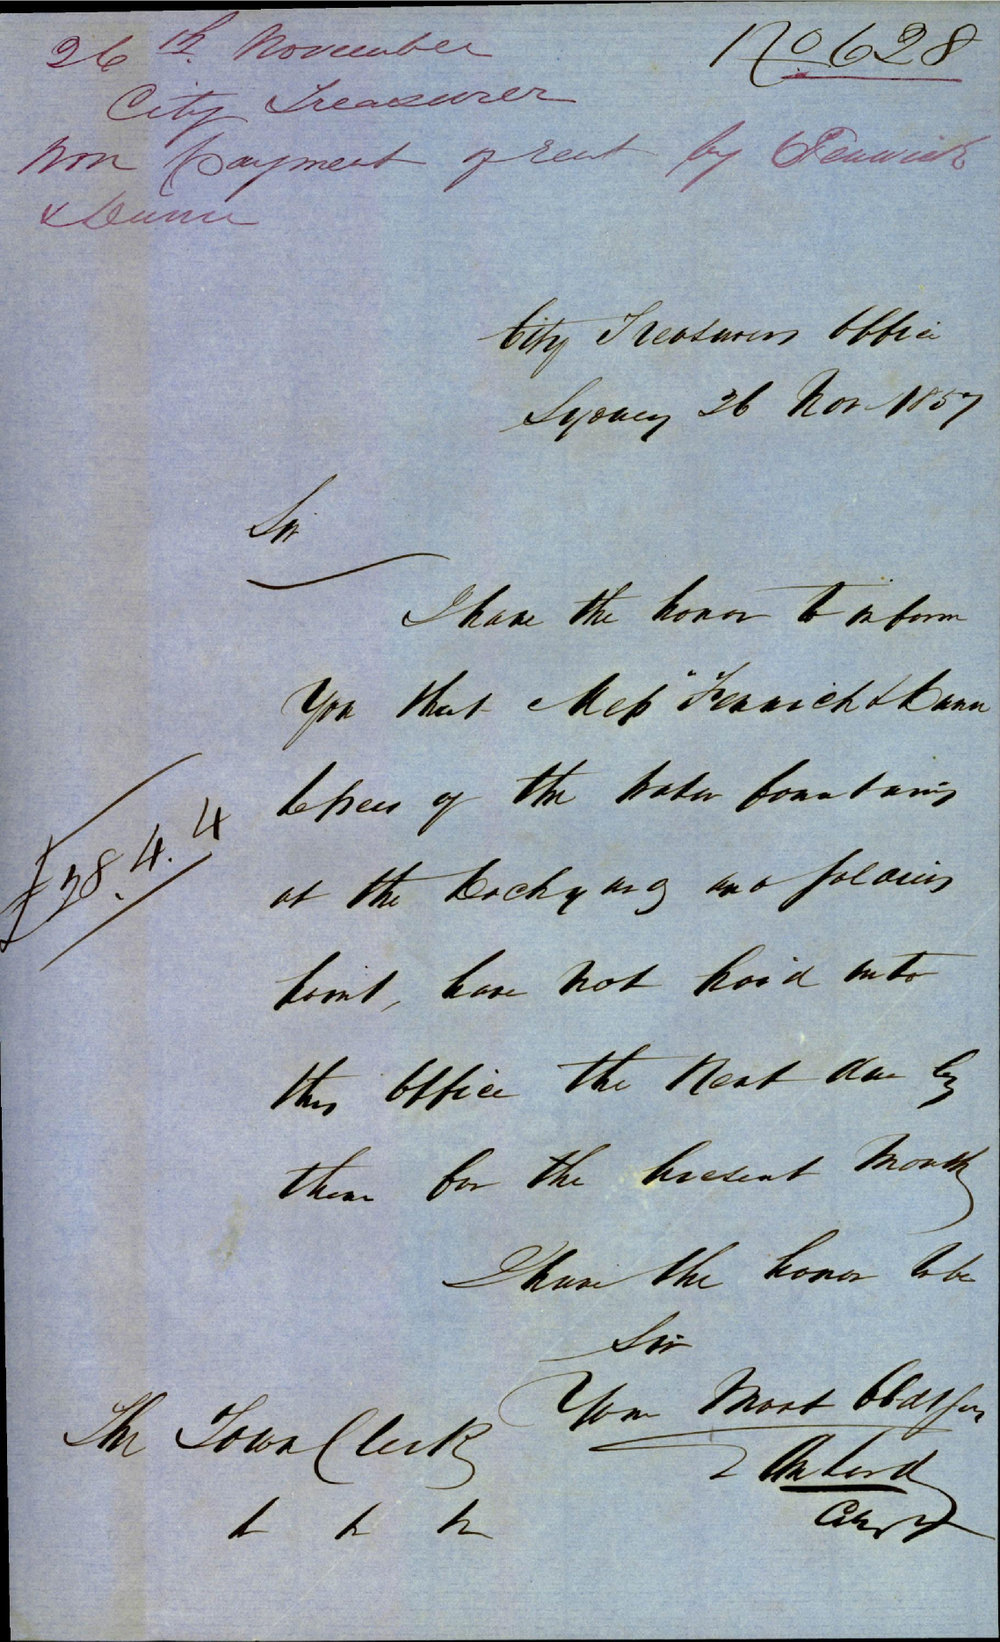 26th November
No 628
City Treasurer
Non payment of rent by Fenwick
& Dunn
City Treasurers Office
Sydney 26 Nov 1857
Sir
I have the honor to inform
You that Mess Fenwick & Dunn
Lessees of the Water fountains
£38.4.4
at the Dockyard and Soldiers
Point, have not paid into
this Office the Rent due by
them for the present Month
I have the honor to be
Sir
Your Most Obdt Ser
The Town Clerk
City Tr